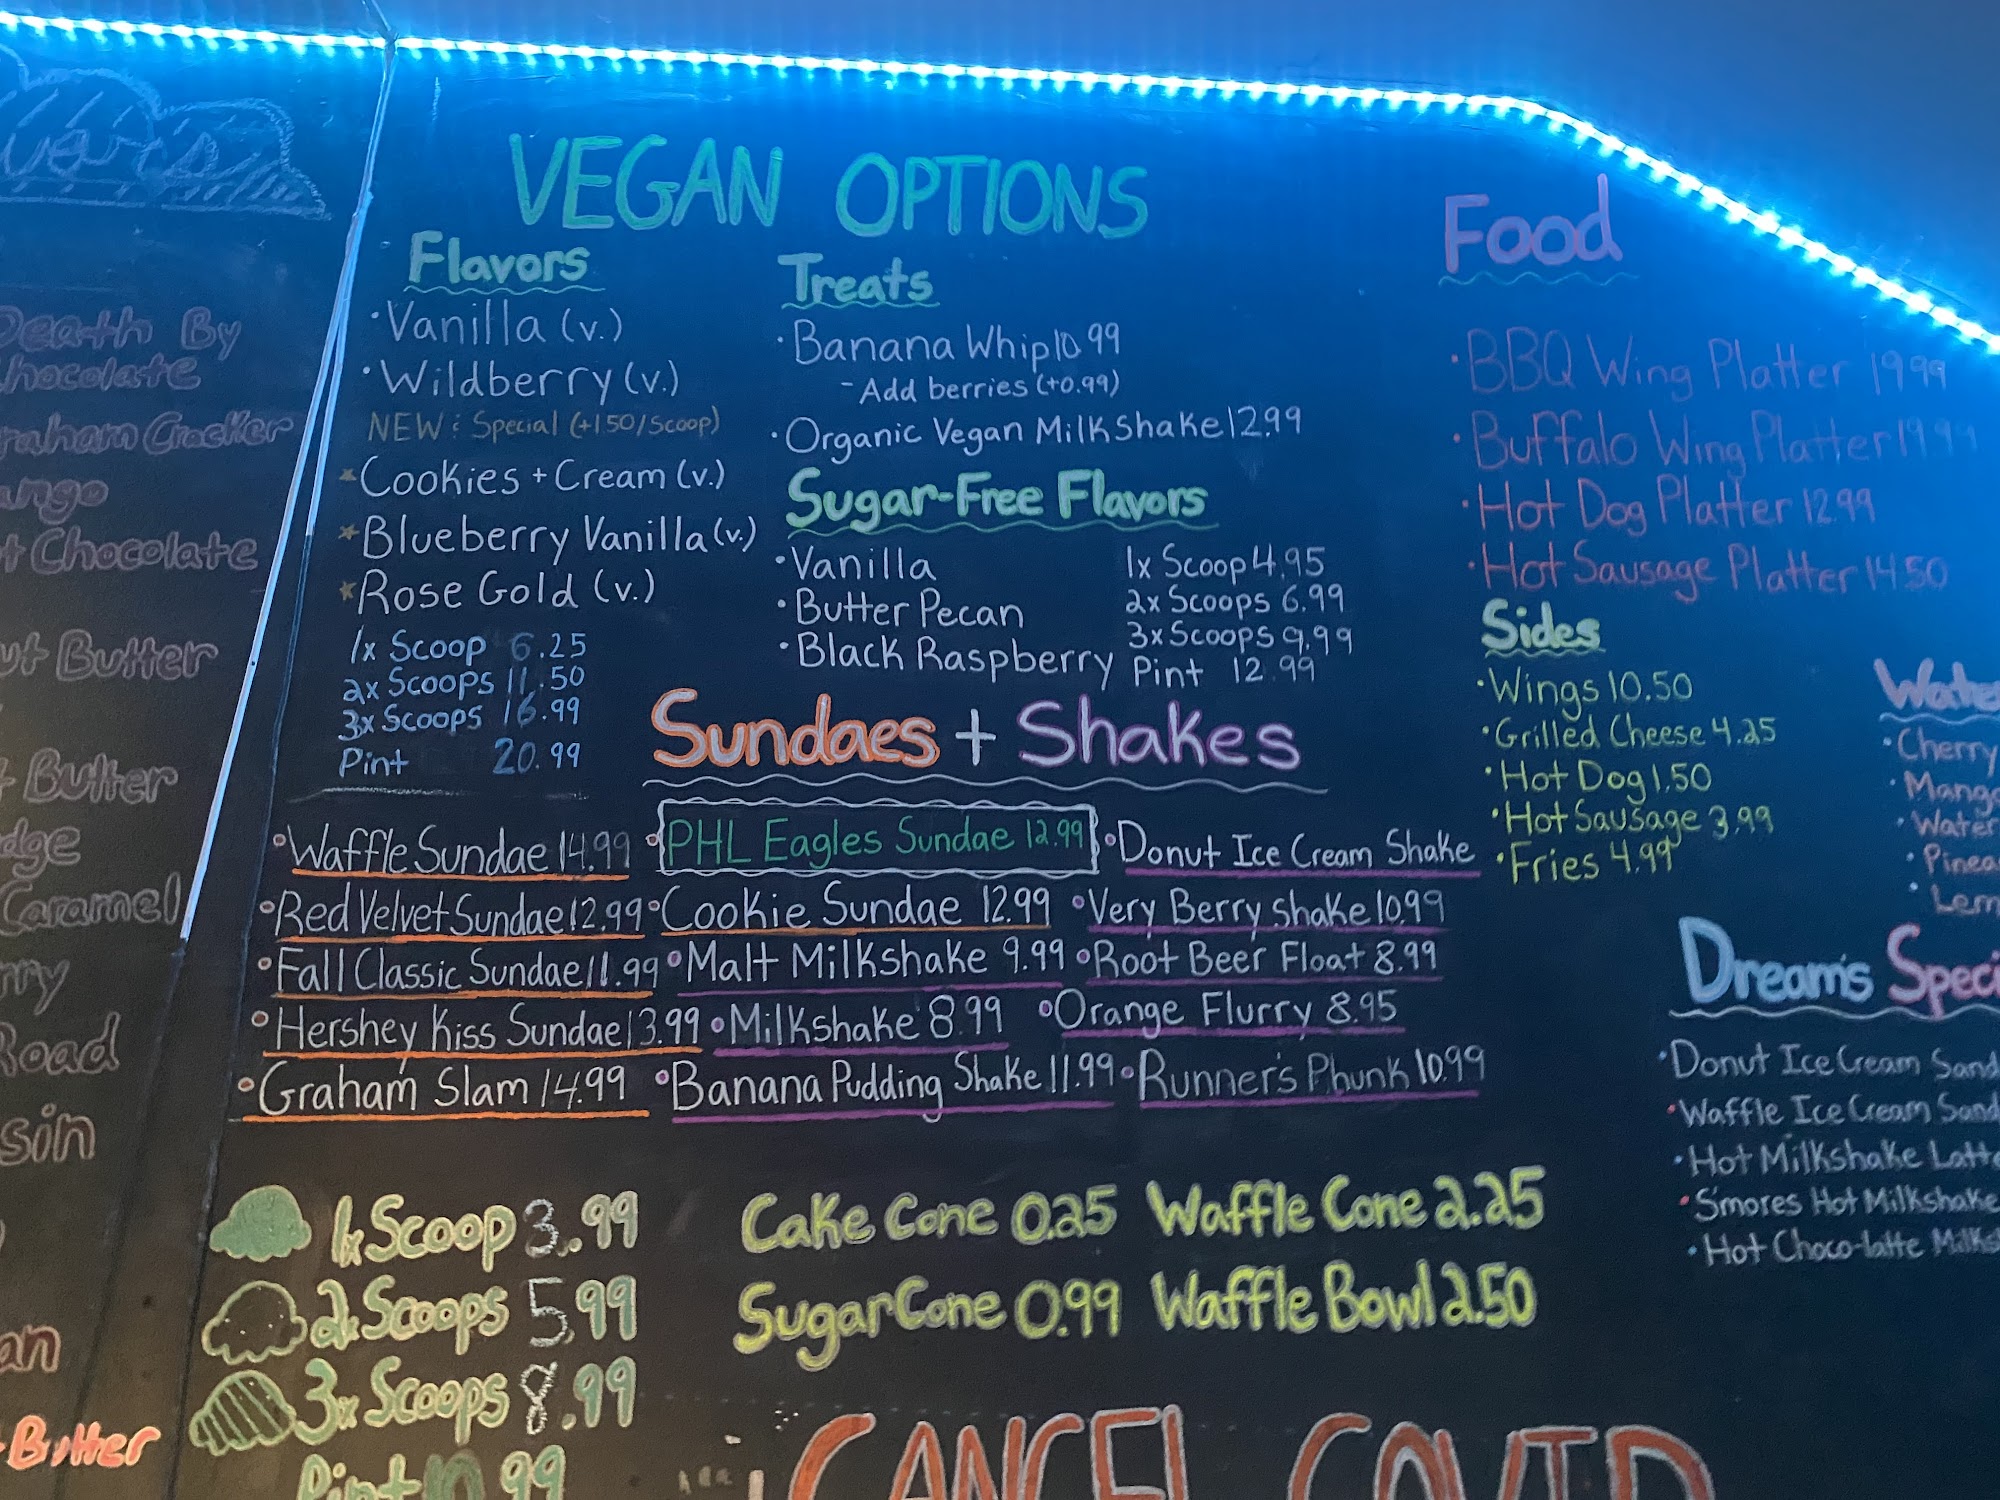 Death By
Chocolate
Graham Cracker
Chocolate
Butter
Butter
Caramel
Road
Butter
VEGAN OPTIONS
Flavors
• Vanilla (v.)
• Wildberry (v.)
NEW : Special (+1.50/Scoop)
Cookies + Cream (v.)
Blueberry Vanilla (v.)
Rose Gold (v.)
1x Scoop 6.25
2x Scoops 11.50
3x Scoops 16.99
Pint 20.99
Treats
• Banana Whip 10.99
- Add berries (+0.99)
• Organic Vegan Milkshake 12.99
Sugar-Free Flavors
• Vanilla
• Butter Pecan
• Black Raspberry
1x Scoop 4.95
2x Scoops 6.99
3x Scoops 9.99
Pint 12.99
Food
• BBQ Wing Platter 19.99
• Buffalo Wing Platter 19.99
• Hot Dog Platter 12.99
• Hot Sausage Platter 14.50
Sides
• Wings 10.50
• Grilled Cheese 4.25
• Hot Dog 1.50
• Hot Sausage 3.99
• Fries 4.99
Sundaes + Shakes
• Waffle Sundae 14.99
• Red Velvet Sundae 12.99
• Fall Classic Sundae 11.99
• Hershey Kiss Sundae 13.99
• Graham Slam 14.99
• PHL Eagles Sundae 12.99
• Cookie Sundae 12.99
• Malt Milkshake 9.99
• Milkshake 8.99
• Banana Pudding Shake 11.99
• Donut Ice Cream Shake
• Very Berry shake 10.99
• Root Beer Float 8.99
• Orange Flurry 8.95
• Runner's Phunk 10.99
Water
• Cherry
• Mango
• Water
• Pinea
• Lem
Dream's Speci
• Donut Ice Cream Sand
• Waffle Ice Cream Sand
• Hot Milkshake Latte
• S'mores Hot Milkshake
• Hot Choco-latte Milks
1x Scoop 3.99
2x Scoops 5.99
3x Scoops 8.99
Pint 10.99
Cake Cone 0.25
Sugar Cone 0.99
Waffle Cone 2.25
Waffle Bowl 2.50
CANCEL COVID